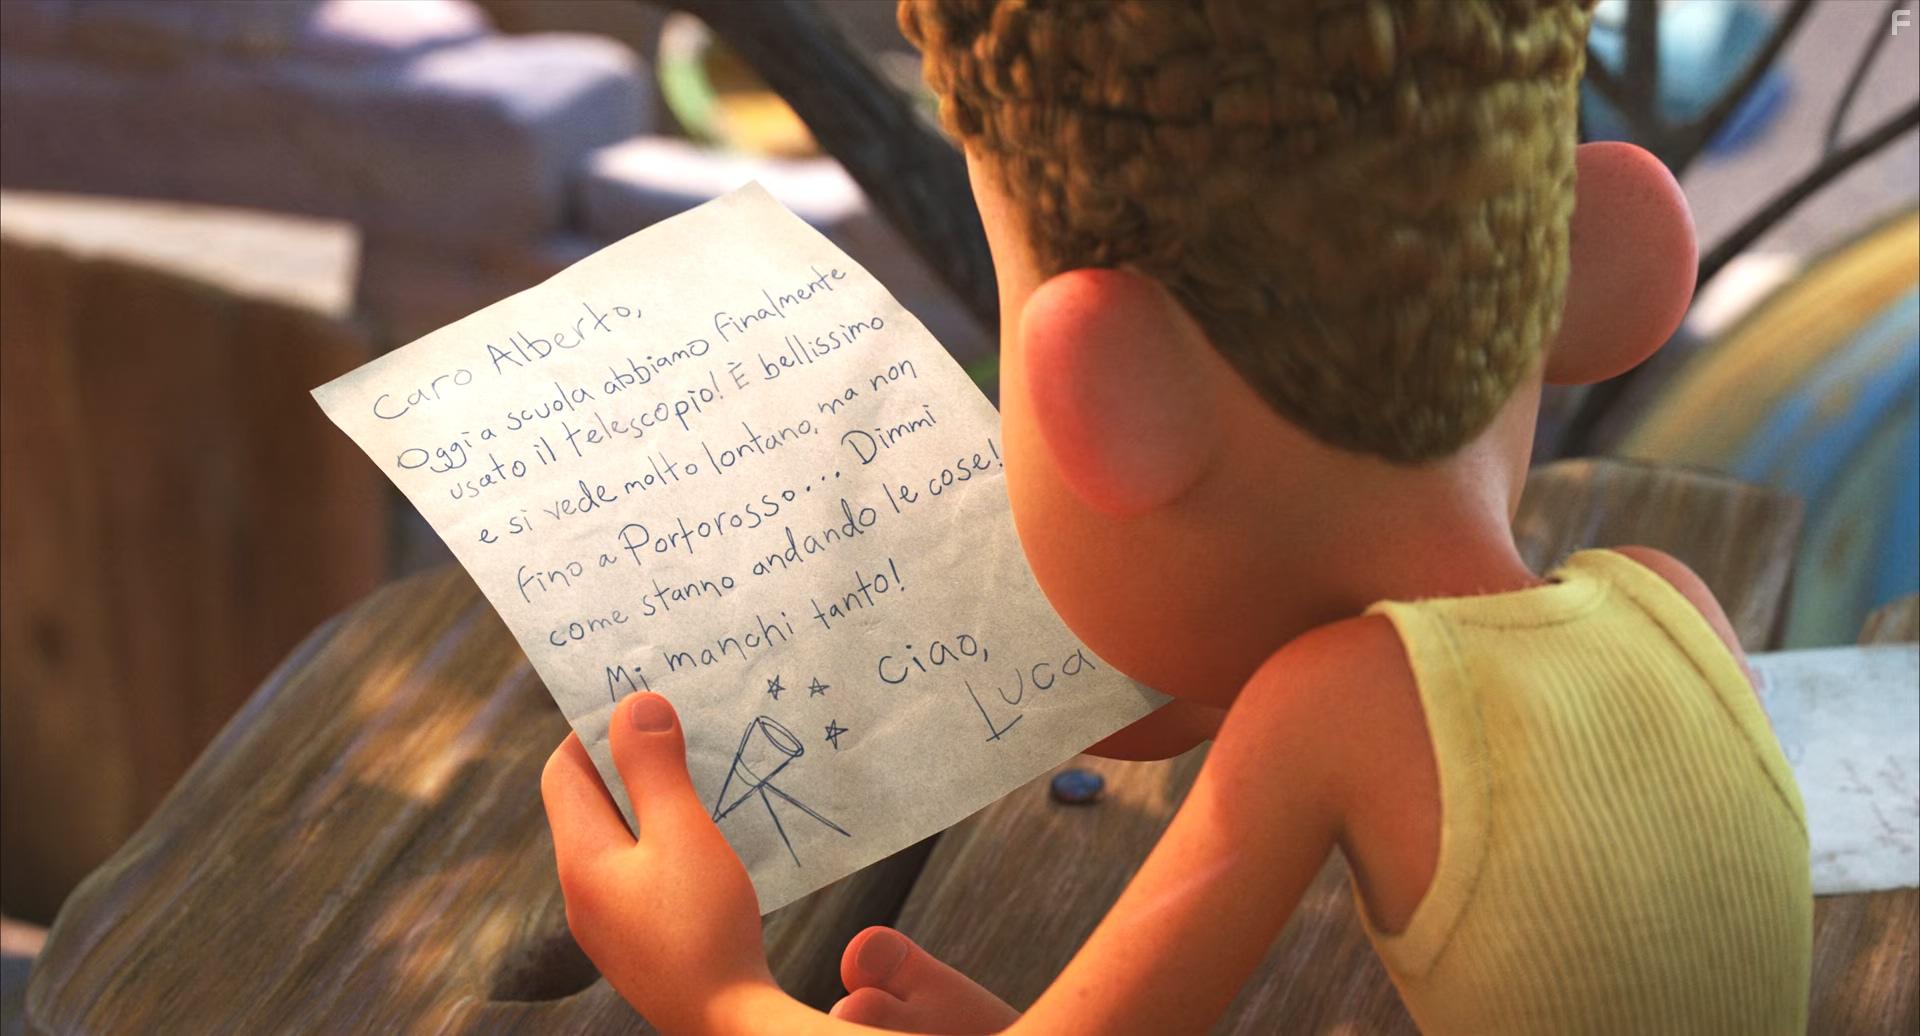 Caro Alberto,
Oggi a scuola abbiamo finalmente
usato il telescopio! È bellissimo
e si vede molto lontano, ma non
fino a Portorosso... Dimmi
come stanno andando le cose!
Mi manchi tanto!
Ciao,
Luca
F